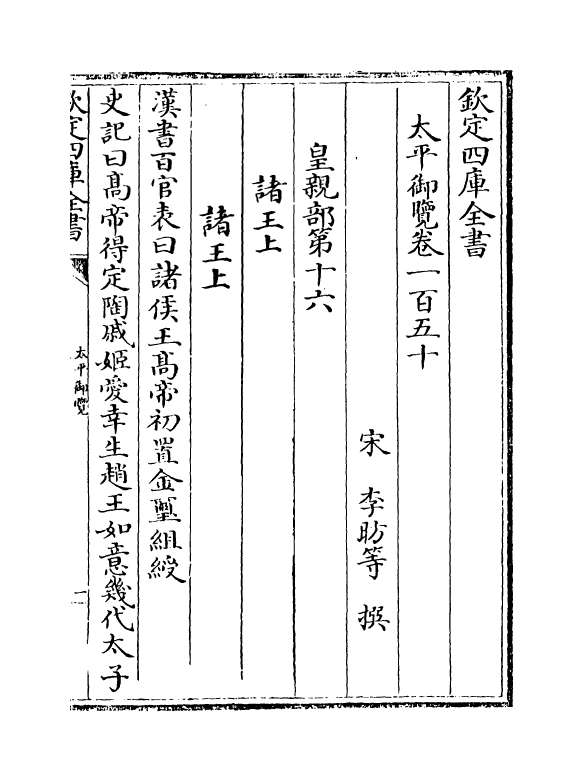 欽定四庫全書
太平御覽卷一百五十
宋 李昉等 撰
皇親部第十六
諸王上
諸王上
漢書百官表曰諸侯王髙帝初置金璽組綬
史記曰髙帝得定陶戚姬愛幸生趙王如意幾代太子
欽定四庫全書
太平御覽
一